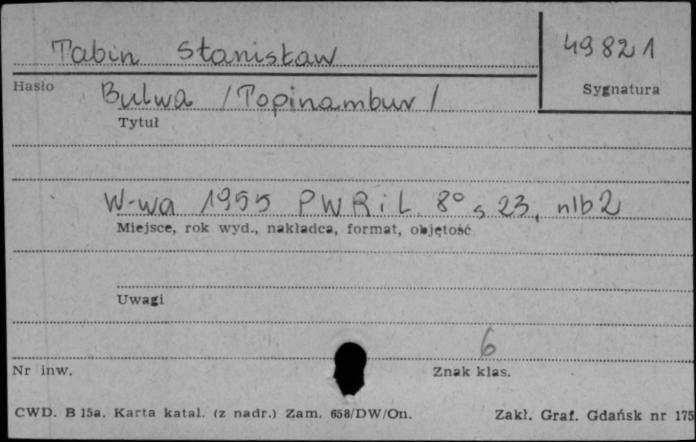 Tabin Stanisław
49821
Hasło
Sygnatura
Bulwa /Topinambur/
Tytuł
W-wa 1955 PWRiL 8° s 23, nlb 2
Miejsce, rok wyd., nakładca, format, objętość
Uwagi
6
Nr inw.
Znak klas.
CWD. B 15a. Karta katal. (z nadr.) Zam. 658/DW/On.
Zakł. Graf. Gdańsk nr 175